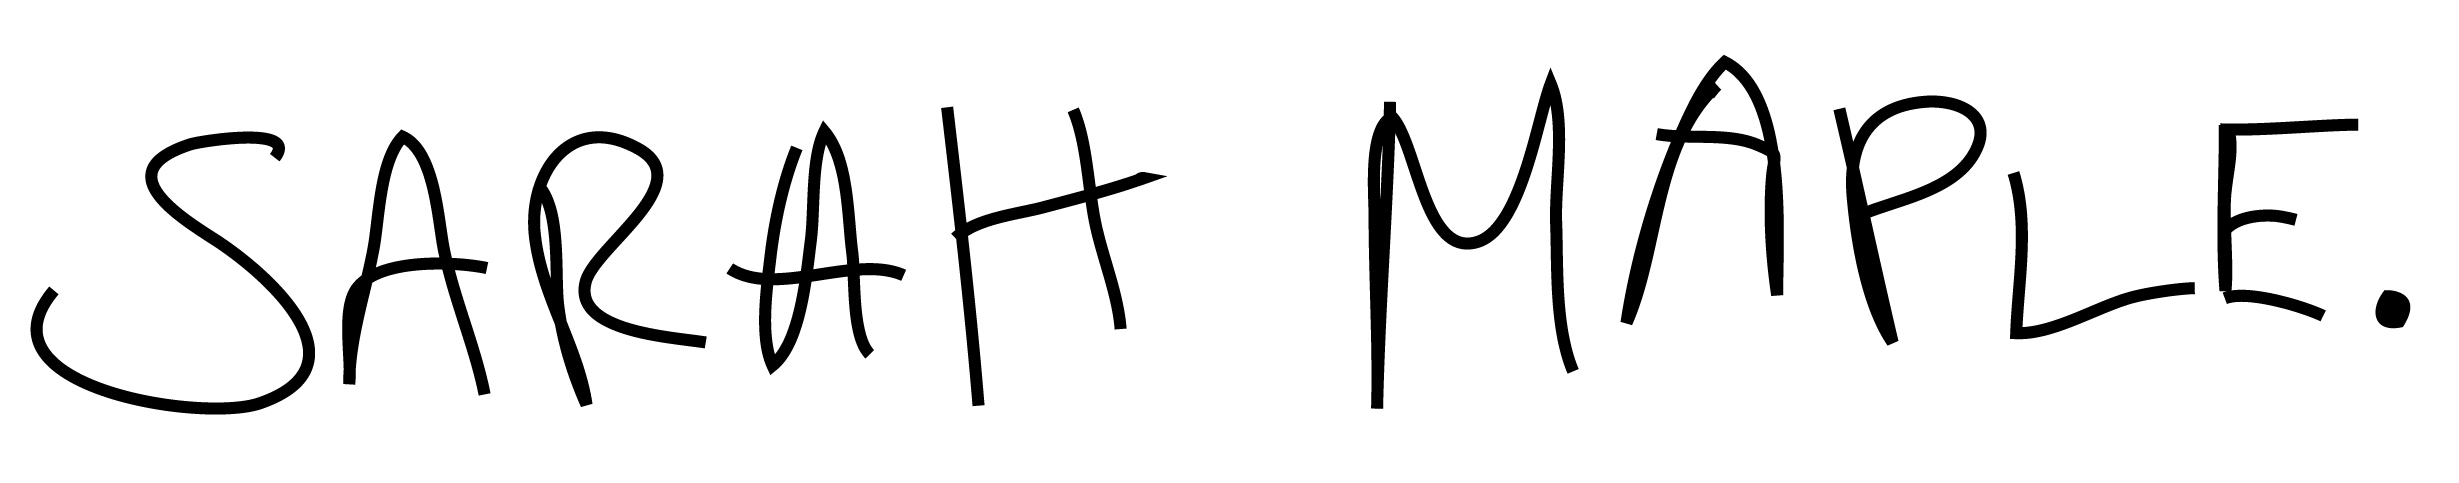 SARAH MAPLE.